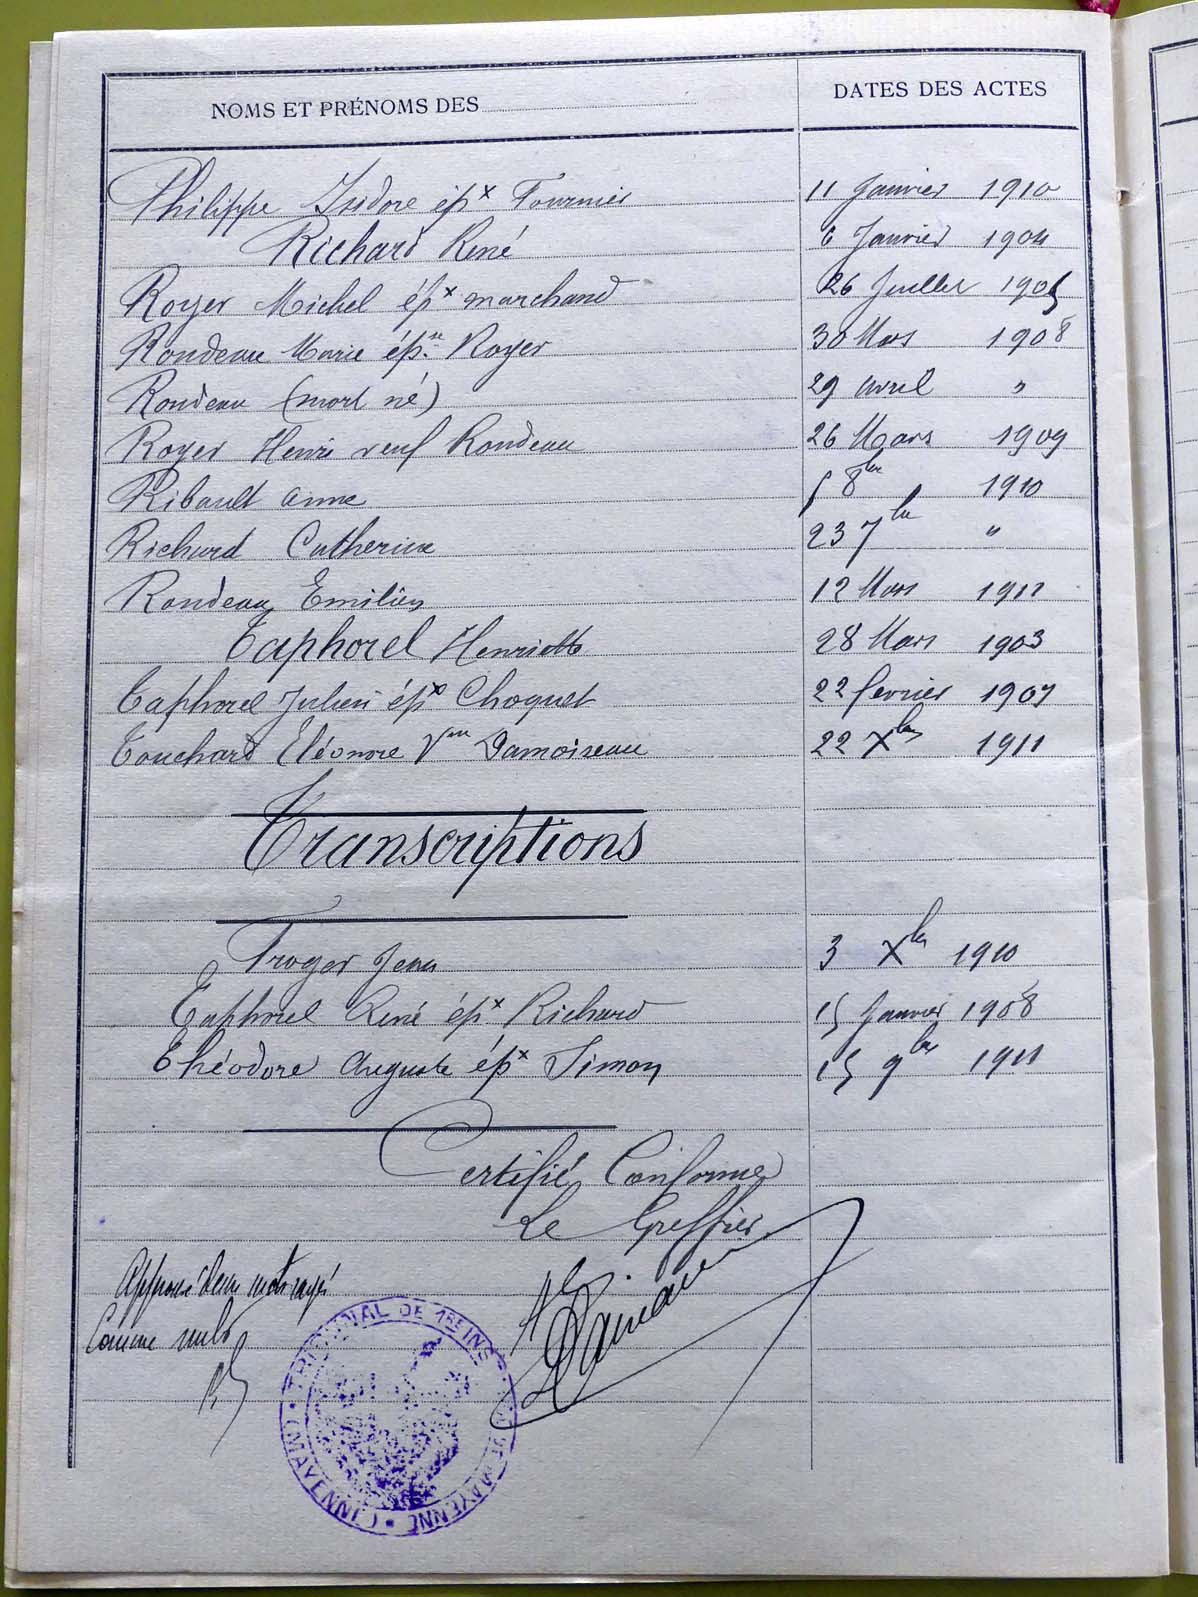 NOMS ET PRÉNOMS DES DATES DES ACTES
Philippe Isidore épx Fournier 11 Janvier 1910
Richard René 6 Janvier 1904
Royer Michel épx marchand 26 Juillet 1905
Rondeau Marie épse Royer 30 Mars 1908
Rondeau (mort né) 29 avril "
Royer Henri veuf Rondeau 26 Mars 1909
Ribault anne 5 8bre 1910
Richard Catherine 23 7bre "
Rondeau Emilien 12 Mars 1912
Taphorel Henriette 28 Mars 1903
Taphorel Julien épx Choquet 22 fevrier 1907
Touchard Eléonore Vve Damoiseau 22 Xbre 1911
Transcriptions
Troger Jean 3 Xbre 1910
Taphorel René épx Richard 15 Janvier 1908
Théodore Auguste épx Simon 15 9bre 1911
Certifié Conforme
Le Greffier
Approuvé deux mots rayés
Comme nuls
TRIBUNAL DE 1RE INS DE MAYENNE (MAYENNE)